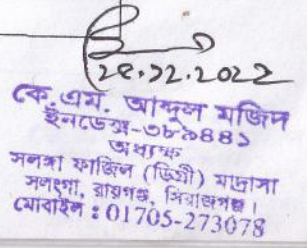 28.12.2022
কে.এম. আব্দুল মজিদ
ইনডেক্স-৩৮৯৪৪১
অধ্যক্ষ
সলঙ্গা ফাজিল (ডিগ্রী) মাদ্রাসা
সলংগা, রায়গঞ্জ, সিরাজগঞ্জ।
মোবাইল : 01705-273078